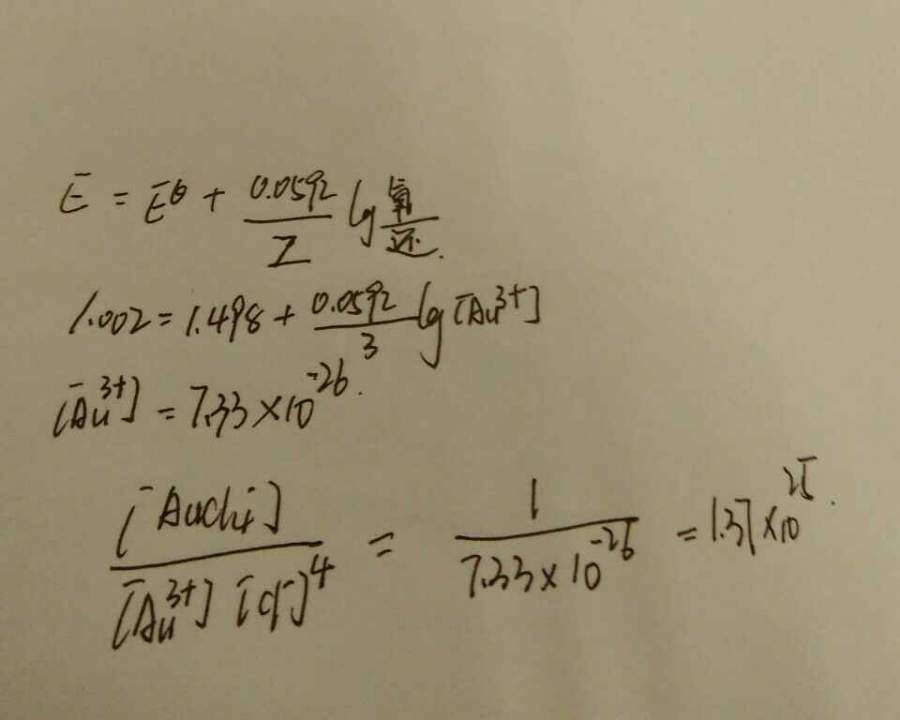 E = E^θ + 0.0592/Z lg 氧/还.
1.002 = 1.498 + 0.0592/3 lg [Au³⁺]
[Au³⁺] = 7.33 × 10⁻²⁶.
[AuCl₄⁻]/[Au³⁺] [Cl⁻]⁴ = 1/7.33 × 10⁻²⁶ = 1.37 × 10²⁵.